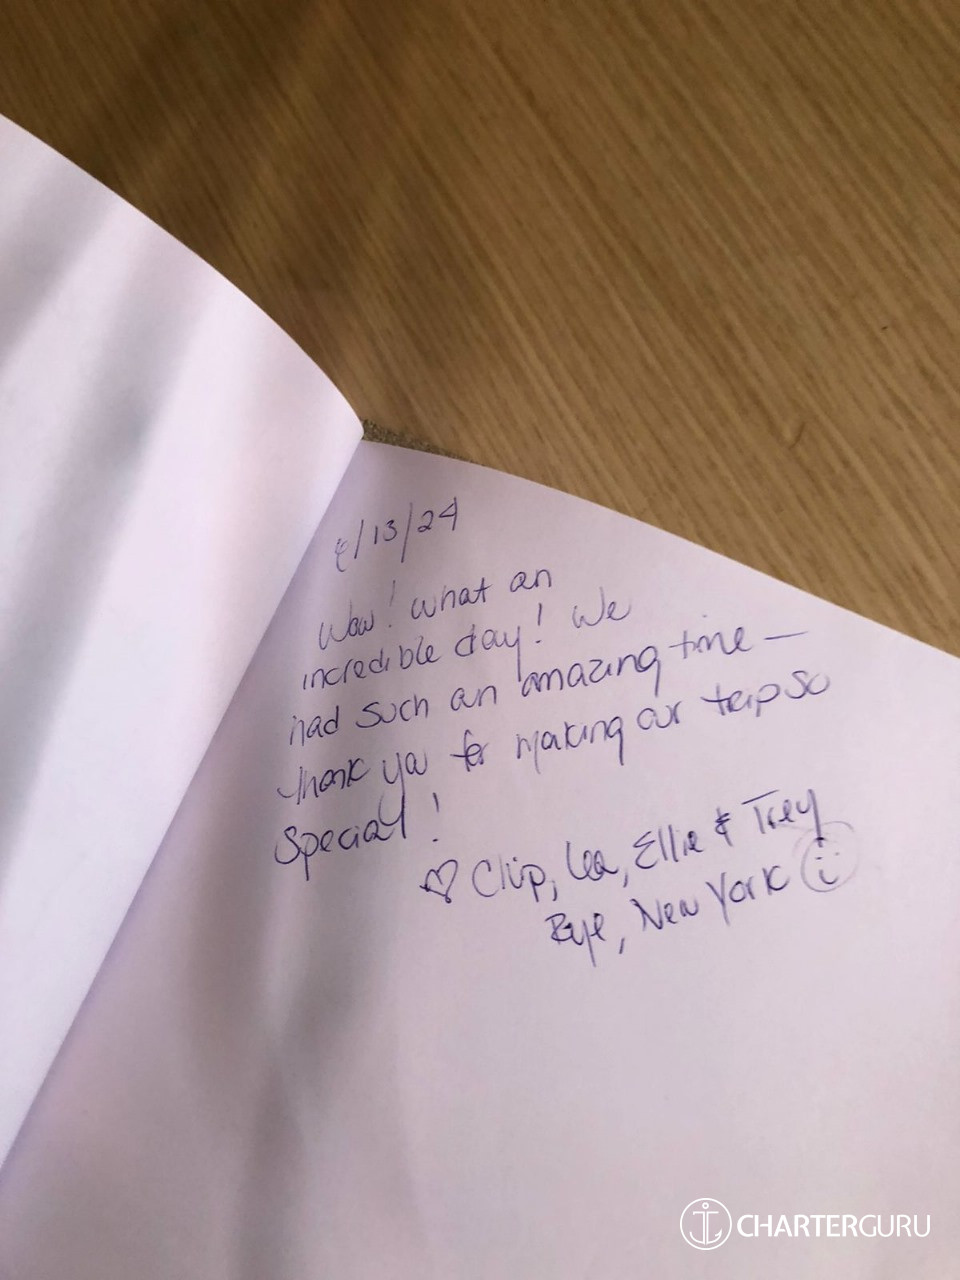 /13/24
Wow! What an
incredible day! We
had such an amazing time —
thank you for making our trip so
special!
♡ Chip, Lea, Ellie & Trey
Rye, New York ☺
CHARTERGURU